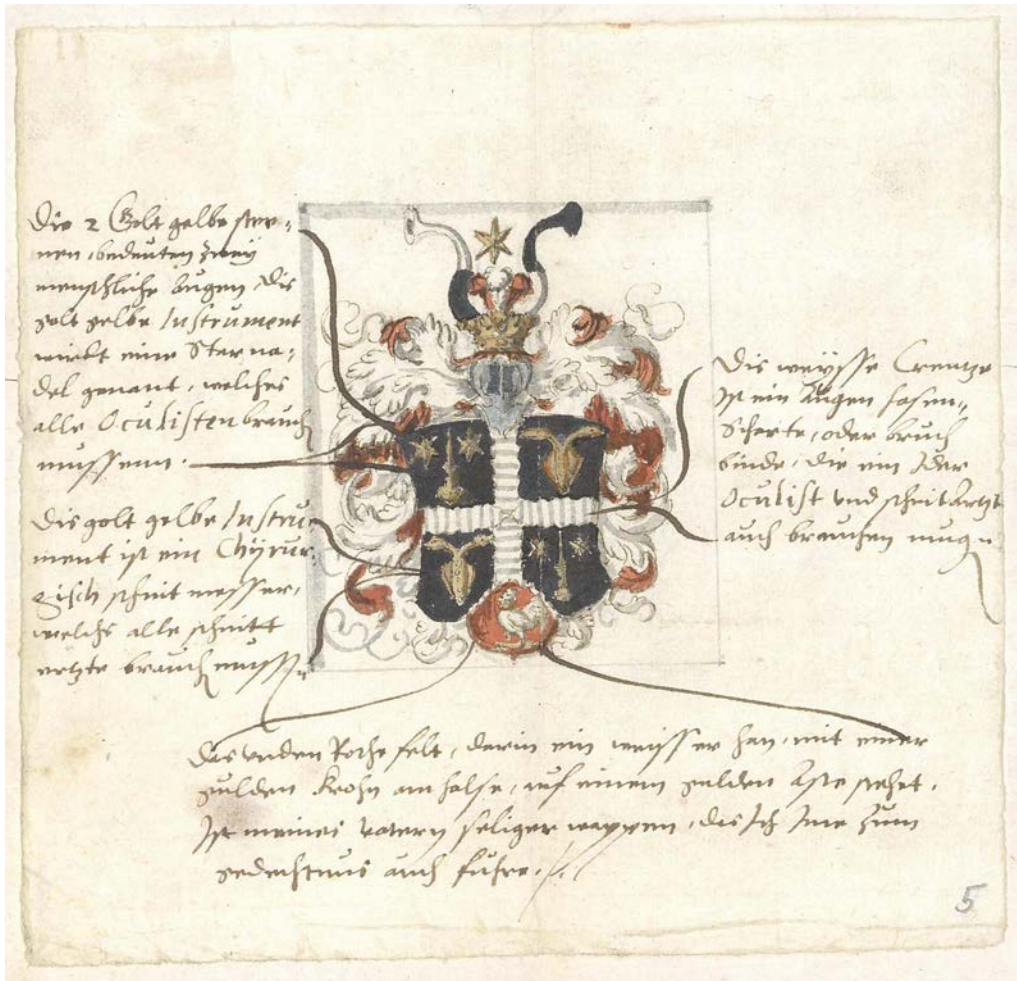 Die 2 Golt gelbe ster„
nen, bedeuten zweÿ
menschliche augen, Dis
golt gelbe Instrument
wirdt eine Starna„
del genant, welches
alle Oculisten brauch
mussenn.
Dis golt gelbe Instru„
ment ist ein Chÿrur„
gisch schnit messer,
welchs alle schnitt
ertzte brauch muss
Dis weÿsse Creutze
ist ein Augen hasen„
Scharte, oder bruch
binde, die ein Jder
Oculist vnd schnit Artzt
auch brauchen mug
Das vnden Rothe felt, darin ein weisser han, mit einer
gulden Krohn am halse, auf einem gulden Aste stehet,
Ist meines vatern seliger wappen, das Ich Ime zum
gedechtnus auch fuhre.
5